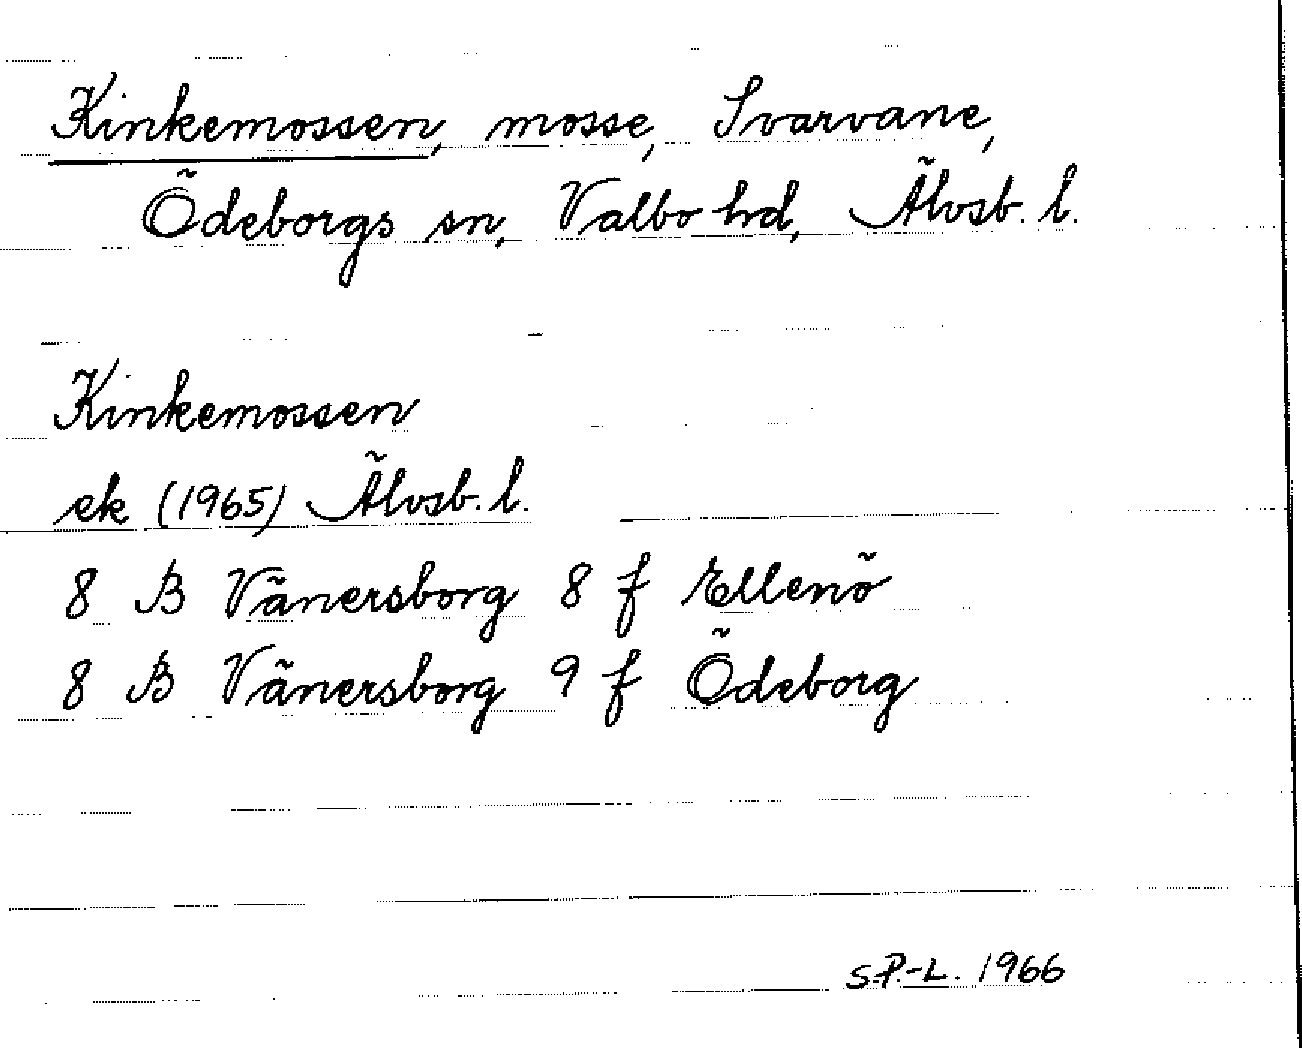 Kinkemossen, mosse, Svarvane,
Ödeborgs sn, Valbo hd, Älvsb. l.
Kinkemossen
ek (1965) Älvsb. l.
8 B Vänersborg 8 f Ellenö
8 B Vänersborg 9 f Ödeborg
S.P.-L. 1966